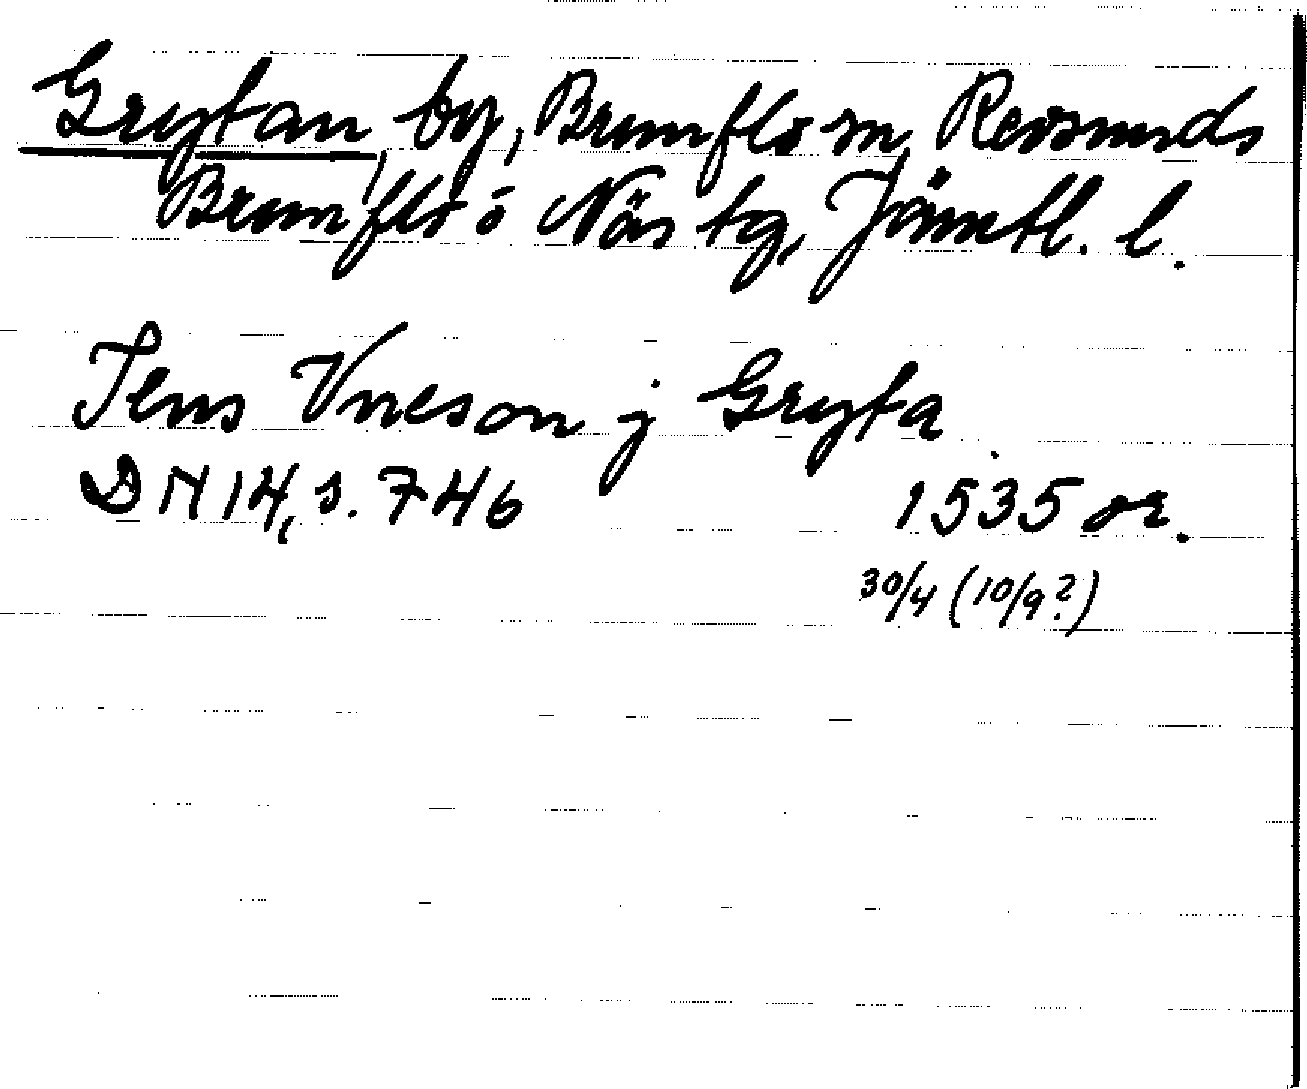 Grytan, by, Brunflo sn, Revsunds
Brunflo o Näs tg, Jämtl. l.
Jens Vneson j Gryta
DN 14, s. 746 1535 or.
30/4 (10/9?)